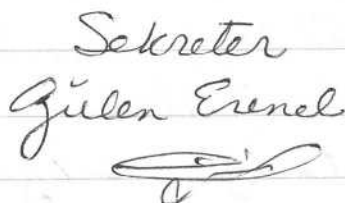 Sekreter
Gülen Erenel